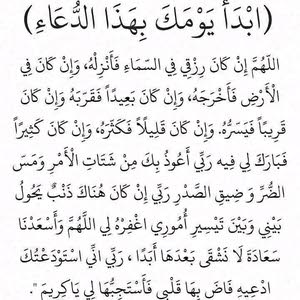 (ابْدَأْ يَوْمَكَ بِهَذَا الدُّعَاءِ)
اللَّهُمَّ إِنْ كَانَ رِزْقِي فِي السَّمَاءِ فَأَنْزِلْهُ، وَإِنْ كَانَ فِي
الْأَرْضِ فَأَخْرَجَهُ، وَإِنْ كَانَ بَعِيدًا فَقَرَبَهُ وَإِنْ كَانَ
قَرِيبًا فَيَسَّرُهُ. وَإِنْ كَانَ قَلِيلًا فَكَثَرَهُ، وَإِنْ كَانَ كَثِيرًا
فَبَارَكَ لِي فِيه رَبِّي أَعُوذُ بِكَ مِنْ شَتَاتِ الْأَمْرِ وَمَسَ
الضُّرِّ وَ ضِيقِ الصَّدْرِ رَبِّي إِنْ كَانَ هُنَاكَ ذَنْبٌ يَحُولُ
بَيْنِي وَبَيْنَ تَيْسِيرِ أُمُورِي اغْفِرْهُ لِي اللَّهُمَّ وَأَسْعَدْنَا
سَعَادَةً لَا نَشْقَى بَعْدَهَا أَبَدًا ، رَبِّي انِّي اسْتَوْدَعْتُكَ
ادْعِيهِ فَاضَ بِهَا قَلْبِي فَأَسْتَجِبُّهَا لِي يَاكِرِيمَ ".